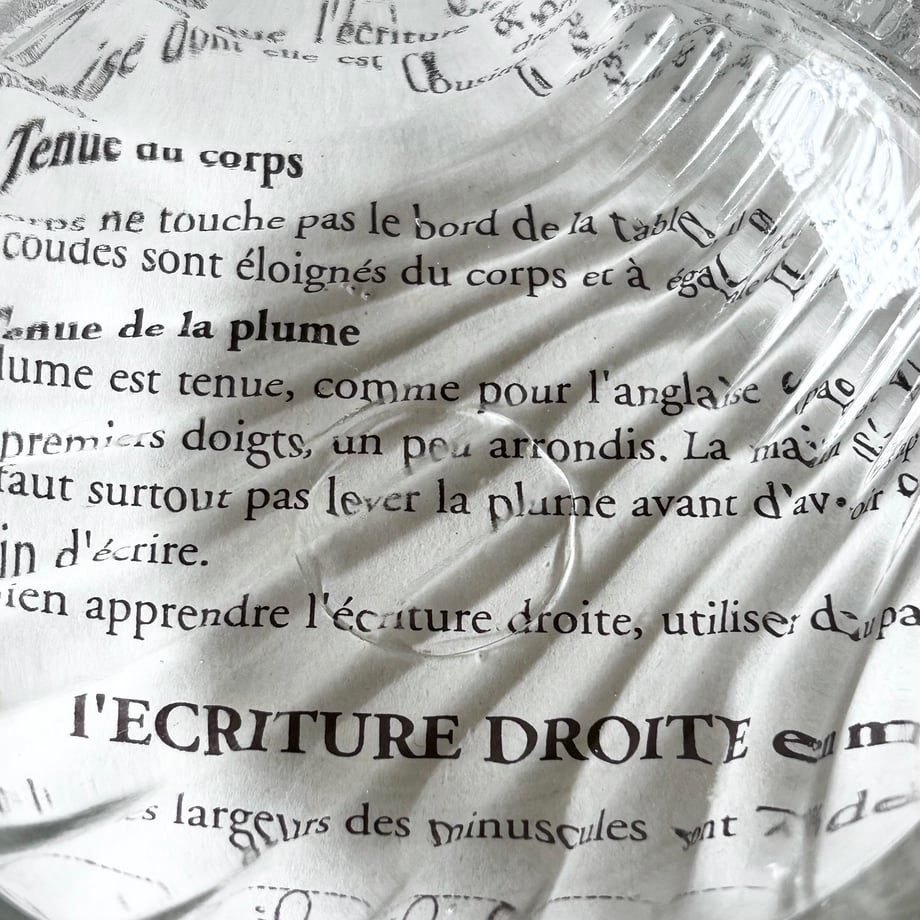 l'écriture
est
Tenue du corps
ne touche pas le bord de la table
coudes sont éloignés du corps et à
Tenue de la plume
lume est tenue, comme pour l'anglaise
premiers doigts, un peu arrondis. La main
faut surtout pas lever la plume avant d'avoir
in d'écrire.
ien apprendre l'écriture droite, utiliser du pa
l'ECRITURE DROITE en m
s largeurs des minuscules sont de